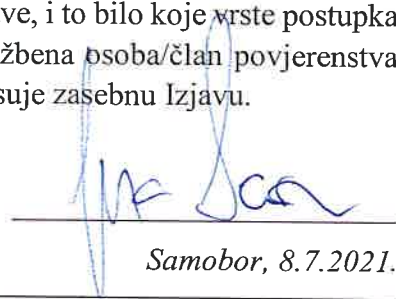 ve, i to bilo koje vrste postupka
žbena osoba/član povjerenstva
suje zasebnu Izjavu.
Samobor, 8.7.2021.